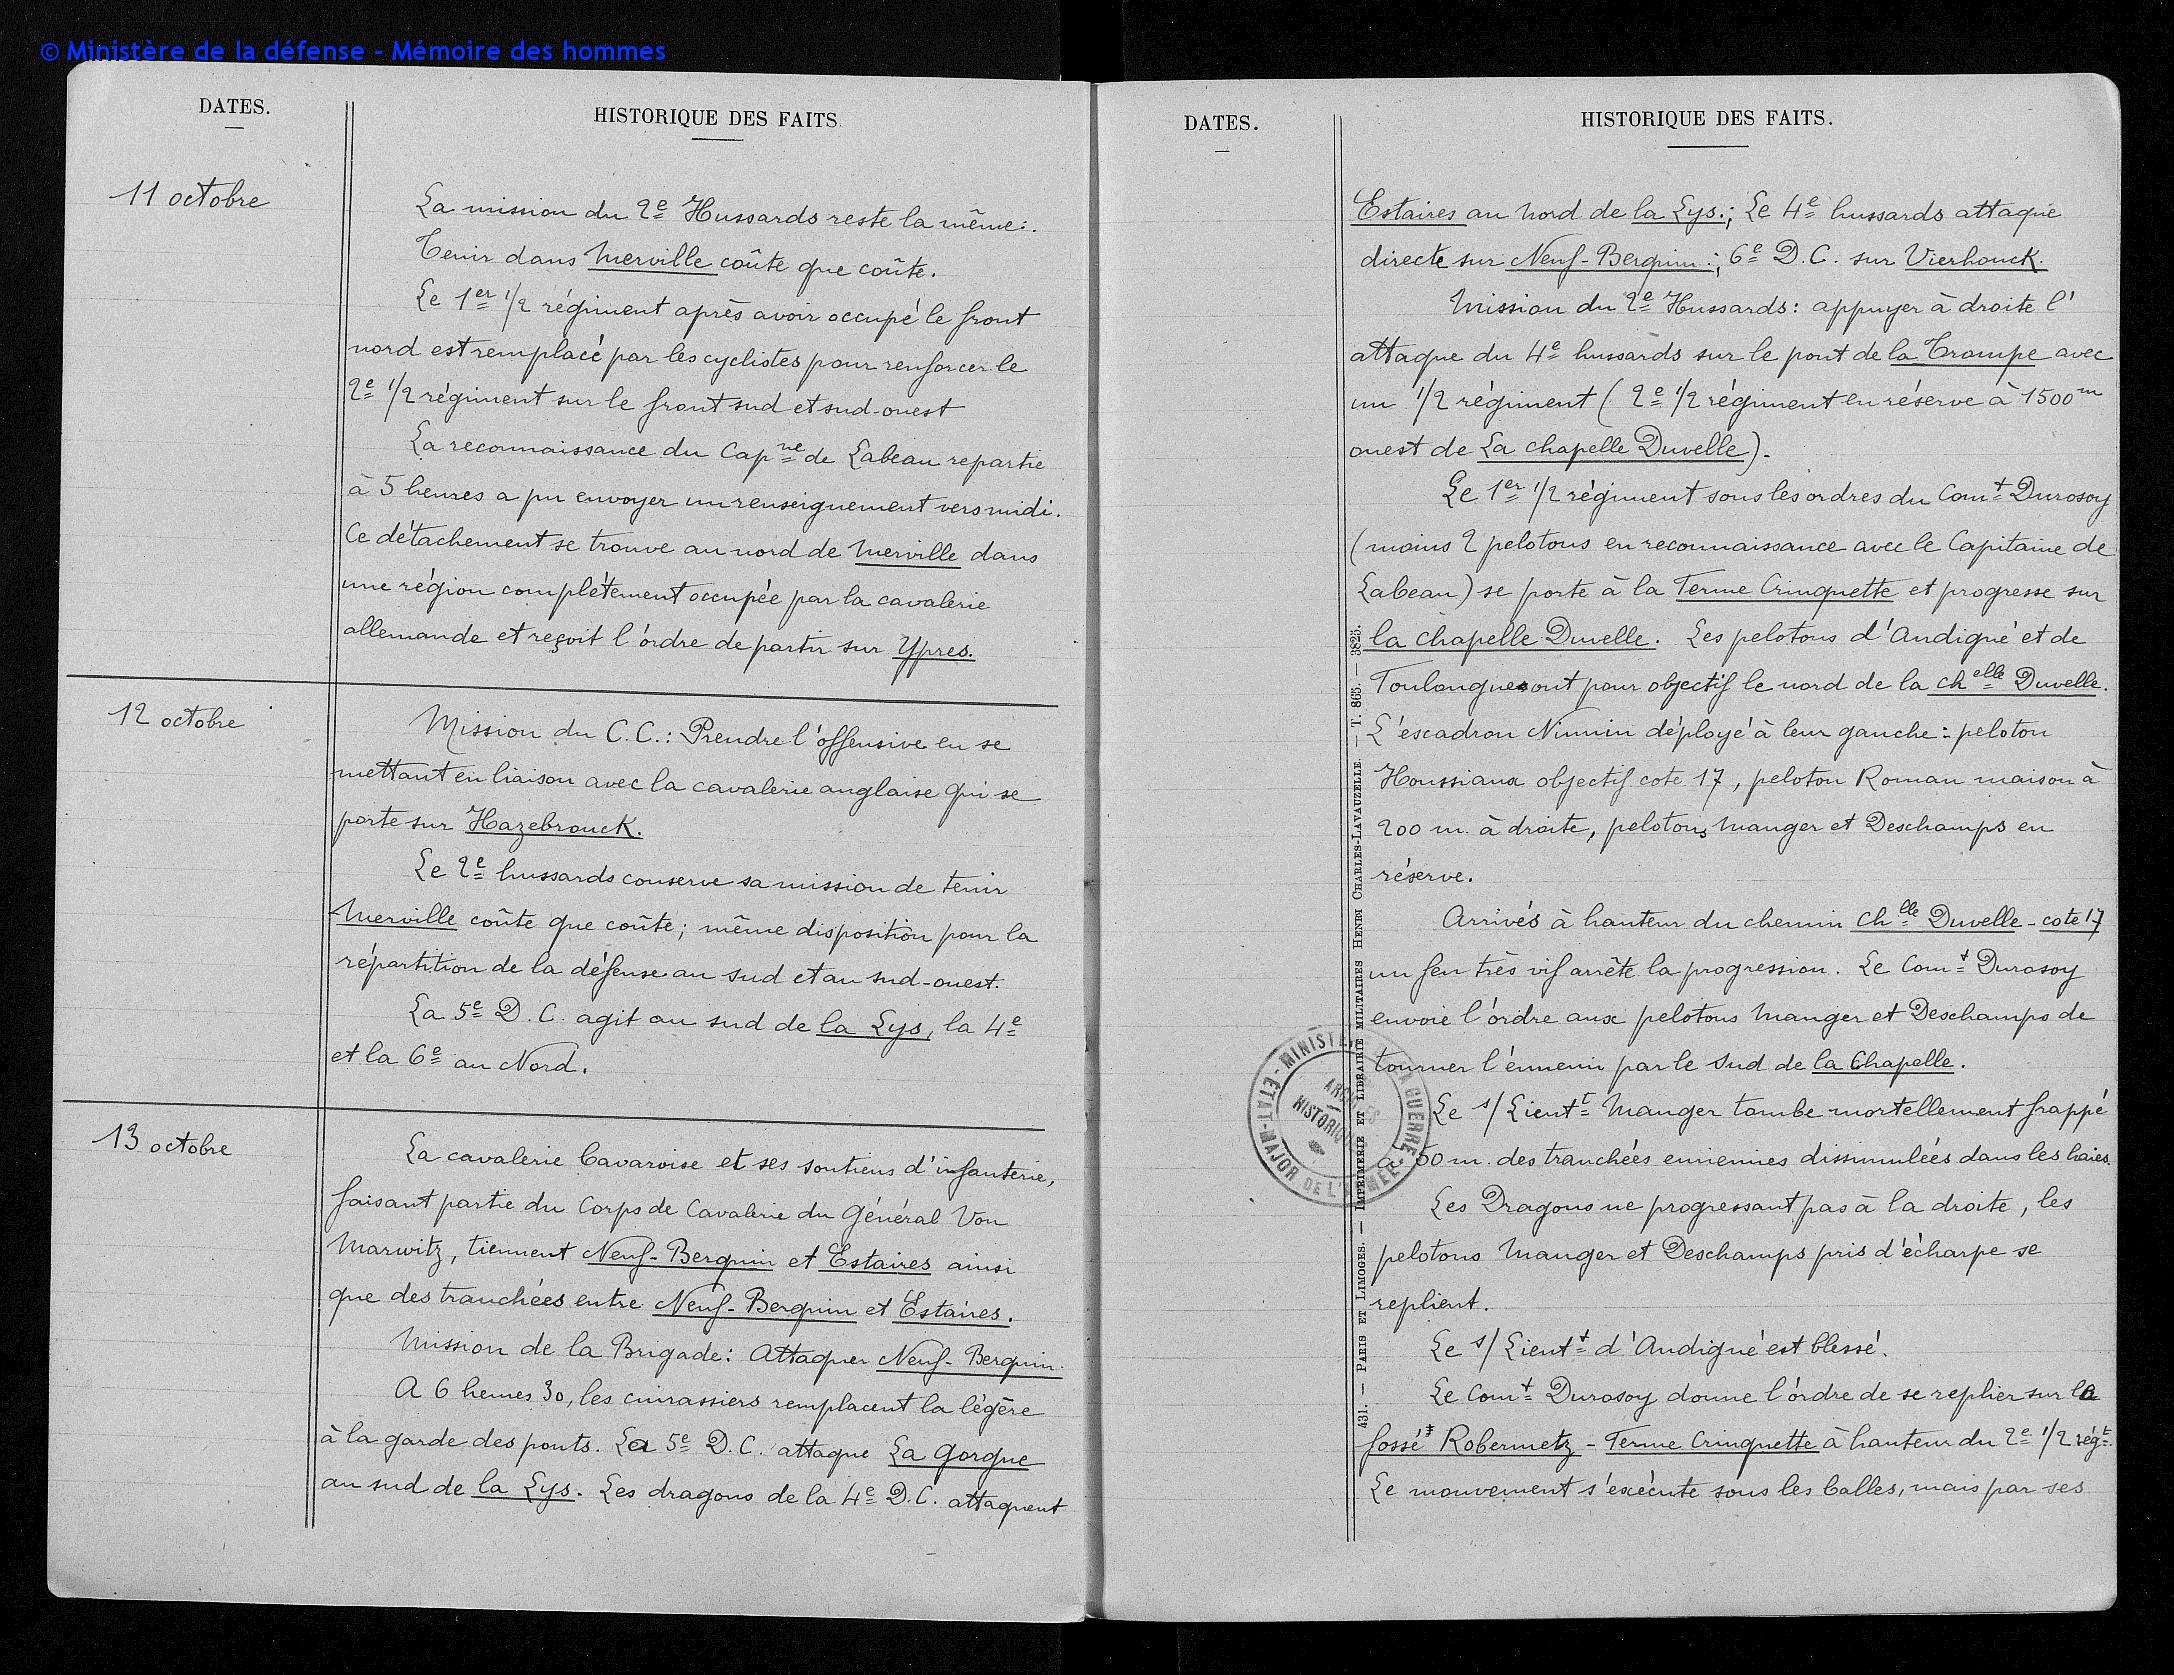 © Ministère de la défense - Mémoire des hommes
DATES.
HISTORIQUE DES FAITS.
11 octobre
La mission du 2e Hussards reste la même :
Tenir dans Merville coûte que coûte.
Le 1er 1/2 régiment après avoir occupé le front
nord est remplacé par les cyclistes pour renforcer le
2e 1/2 régiment sur le front sud et sud-ouest
La reconnaissance du Capne de Labeau repartie
à 5 heures a pu envoyer un renseignement vers midi.
Ce détachement se trouve au nord de Merville dans
une région complètement occupée par la cavalerie
allemande et reçoit l'ordre de partir sur Ypres.
12 octobre
Mission du C.C.: Prendre l'offensive en se
mettant en liaison avec la cavalerie anglaise qui se
porte sur Hazebrouck.
Le 2e hussards conserve sa mission de tenir
Merville coûte que coûte; même disposition pour la
répartition de la défense au sud et au sud-ouest.
La 5e D.C. agit au sud de la Lys, la 4e
et la 6e au Nord.
13 octobre
La cavalerie bavaroise et ses soutiens d'infanterie,
faisant partie du Corps de Cavalerie du Général Von
Marwitz, tiennent Neuf-Berquin et Estaires ainsi
que des tranchées entre Neuf-Berquin et Estaires.
Mission de la Brigade: Attaquer Neuf-Berquin.
A 6 heures 30, les cuirassiers remplacent la légère
à la garde des ponts. La 5e D.C. attaque La Gorgue
au sud de la Lys. Les dragons de la 4e D.C. attaquent
DATES.
HISTORIQUE DES FAITS.
Estaires au nord de la Lys.; Le 4e hussards attaque
directe sur Neuf-Berquin.; 6e D.C. sur Vierhouck.
Mission du 2e Hussards: appuyer à droite l'
attaque du 4e hussards sur le pont de la Trompe avec
un 1/2 régiment (2e 1/2 régiment en réserve à 1500m
ouest de La chapelle Duvelle).
Le 1er 1/2 régiment sous les ordres du Comt Durosoy
(moins 2 pelotons en reconnaissance avec le Capitaine de
Labeau) se porte à la Ferme Crinquette et progresse sur
la chapelle Duvelle. Les pelotons d'Andigné et de
Toulongue ont pour objectif le nord de la chelle Duvelle.
L'escadron Nimin déployé à leur gauche: peloton
Houssiaux objectif cote 17, peloton Roman maison à
200 m. à droite, pelotons Manger et Deschamps en
réserve.
Arrivés à hauteur du chemin Chlle Duvelle - cote 17
un feu très vif arrête la progression. Le Comt Durosoy
envoie l'ordre aux pelotons Manger et Deschamps de
tourner l'ennemi par le sud de la Chapelle.
Le s/Lieutt Manger tombe mortellement frappé
à 50 m. des tranchées ennemies dissimulées dans les haies.
Les Dragons ne progressant pas à la droite, les
pelotons Manger et Deschamps pris d'écharpe se
replient.
Le s/Lieutt d'Andigné est blessé.
Le Comt Durosoy donne l'ordre de se replier sur le
fossé Robermetz - Ferme Crinquette à hauteur du 2e 1/2 régt.
Le mouvement s'exécute sous les balles, mais par ses
431. — PARIS ET LIMOGES. — IMPRIMERIE ET LIBRAIRIE MILITAIRES HENRI CHARLES-LAVAUZELLE. — T. 863. — 3823.
MINISTÈRE DE LA GUERRE
ÉTAT-MAJOR DE L'ARMÉE
ARCHIVES
HISTORIQUES